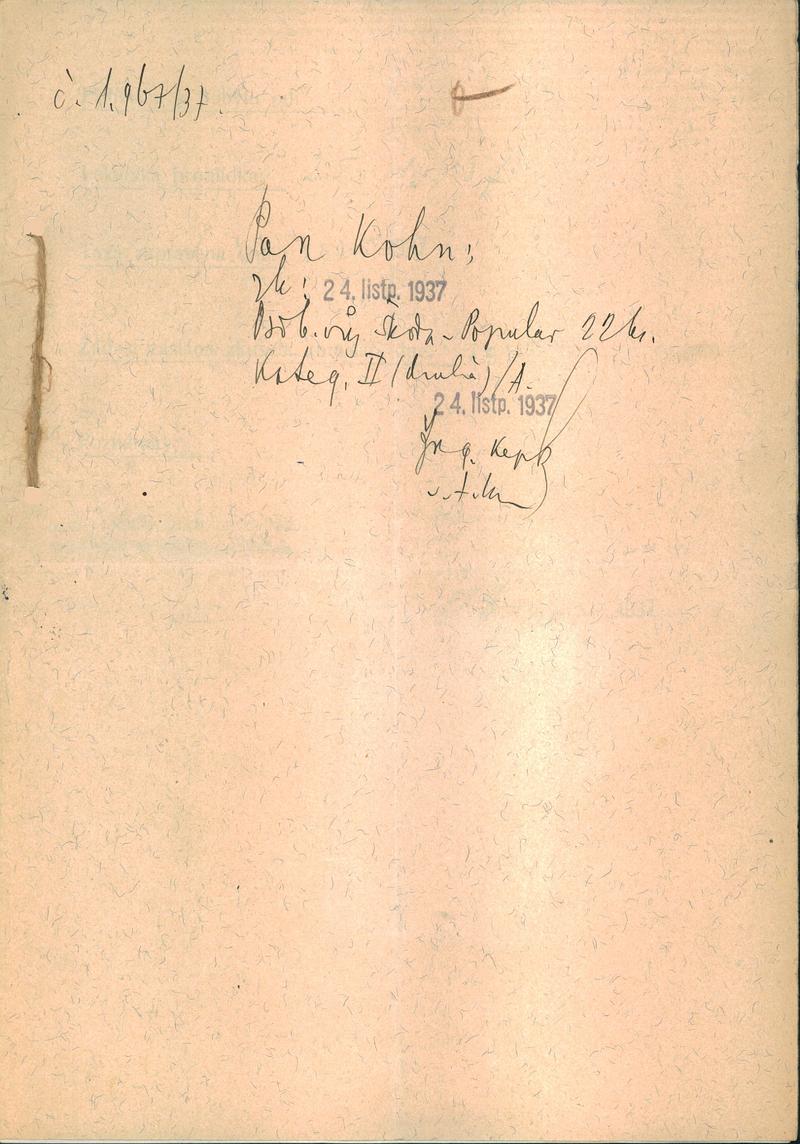 č. 1.967/37.
Pan Kohn:
zk: 24. listp. 1937
Osob. vůz Škoda-Popular 22 ks.
Kateg. II (druhá)/A.
24. listp. 1937
Ing.